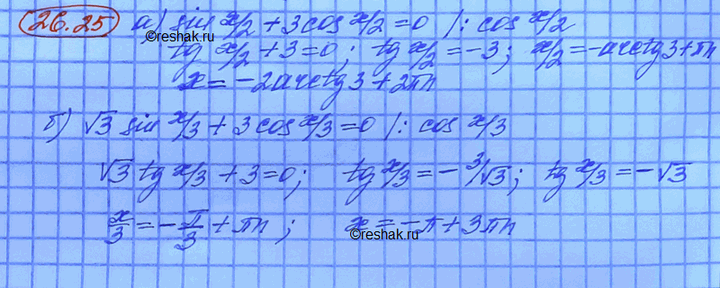 26.25 а) sin x/2 + 3 cos x/2 = 0 /: cos x/2
©reshak.ru
tg x/2 + 3 = 0; tg x/2 = -3; x/2 = -arctg 3 + πn
x = -2arctg 3 + 2πn
б) √3 sin x/3 + 3 cos x/3 = 0 /: cos x/3
√3 tg x/3 + 3 = 0; tg x/3 = - 3/√3; tg x/3 = -√3
x/3 = - π/3 + πn; x = -π + 3πn
©reshak.ru